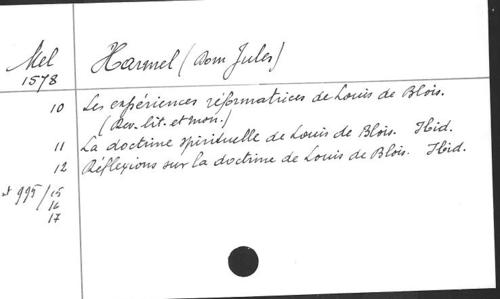 Mel Harmel (Dom Jules)
1578
10 Les expériences réformatrices de Louis de Blois.
(Rev. lit. et mon.)
11 La doctrine spirituelle de Louis de Blois. Ibid.
12 Réflexions sur la doctrine de Louis de Blois. Ibid.
et 995/15
16
17